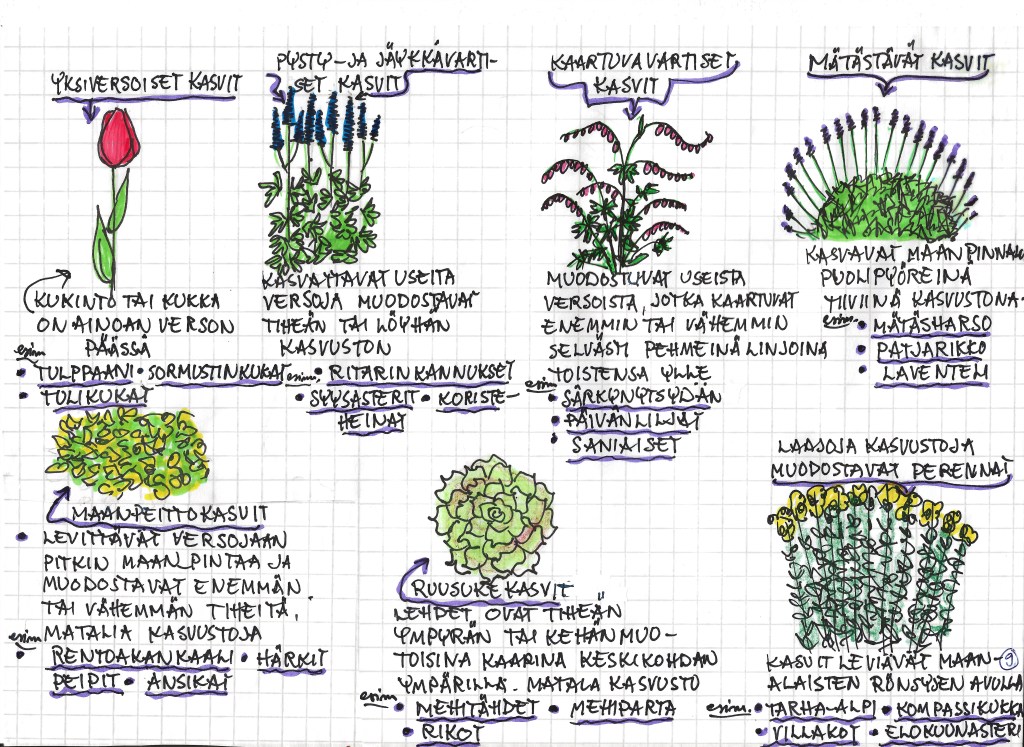 YKSIVERSOISET KASVIT
KUKINTO TAI KUKKA
ON AINOAN VERSON
PÄÄSSÄ
esim.
• TULPPAANI • SORMUSTINKUKAT
• TULIKUKAT
PYSTY- JA JÄYKKÄVARTI-
SET KASVIT
KASVATTAVAT USEITA
VERSOJA MUODOSTAVAT
TIHEÄN TAI LÖYHÄN
KASVUSTON
esim. • RITARINKANNUKSET
• SYYSASTERIT • KORISTE-
HEINÄT
KAARTUVAVARTISET
KASVIT
MUODOSTUVAT USEISTA
VERSOISTA, JOTKA KAARTUVAT
ENEMMIN TAI VÄHEMMIN
SELVÄSTI PEHMEINÄ LINJOINA
TOISTENSA YLLE
esim
• SÄRKYNYTSYDÄN
• PÄIVÄNLILJAT
• SANIAISET
MÄTÄSTÄVÄT KASVIT
KASVAVAT MAAN PINNAN
PUOLIPYÖREINÄ
TIIVIINÄ KASVUSTONA
esim. • MÄTÄSHARSO
• PATJARIKKO
• LAVENTELI
MAANPEITTOKASVIT
• LEVITTÄVÄT VERSOJAAN
PITKIN MAAN PINTAA JA
MUODOSTAVAT ENEMMÄN
TAI VÄHEMMÄN TIHEITÄ,
MATALIA KASVUSTOJA
esim
• RENTOAKANKAALI • HÄRKIT
PEIPIT • ANSIKAT
RUUSUKEKASVIT
LEHDET OVAT TIHEÄN
YMPYRÄN TAI KEHÄN MUO-
TOISINA KAARINA KESKIKOHDAN
YMPÄRILLÄ. MATALA KASVUSTO
esim
• MEHITÄHDET • MEHIPARTA
• RIKOT
LAAJOJA KASVUSTOJA
MUODOSTAVAT PERENNAT
KASVIT LEVIÄVÄT MAAN- 9
ALAISTEN RÖNSYJEN AVULLA
esim. • TARHA-ALPI • KOMPASSIKUKKA
• VILLAKOT • ELOKUUNASTERI